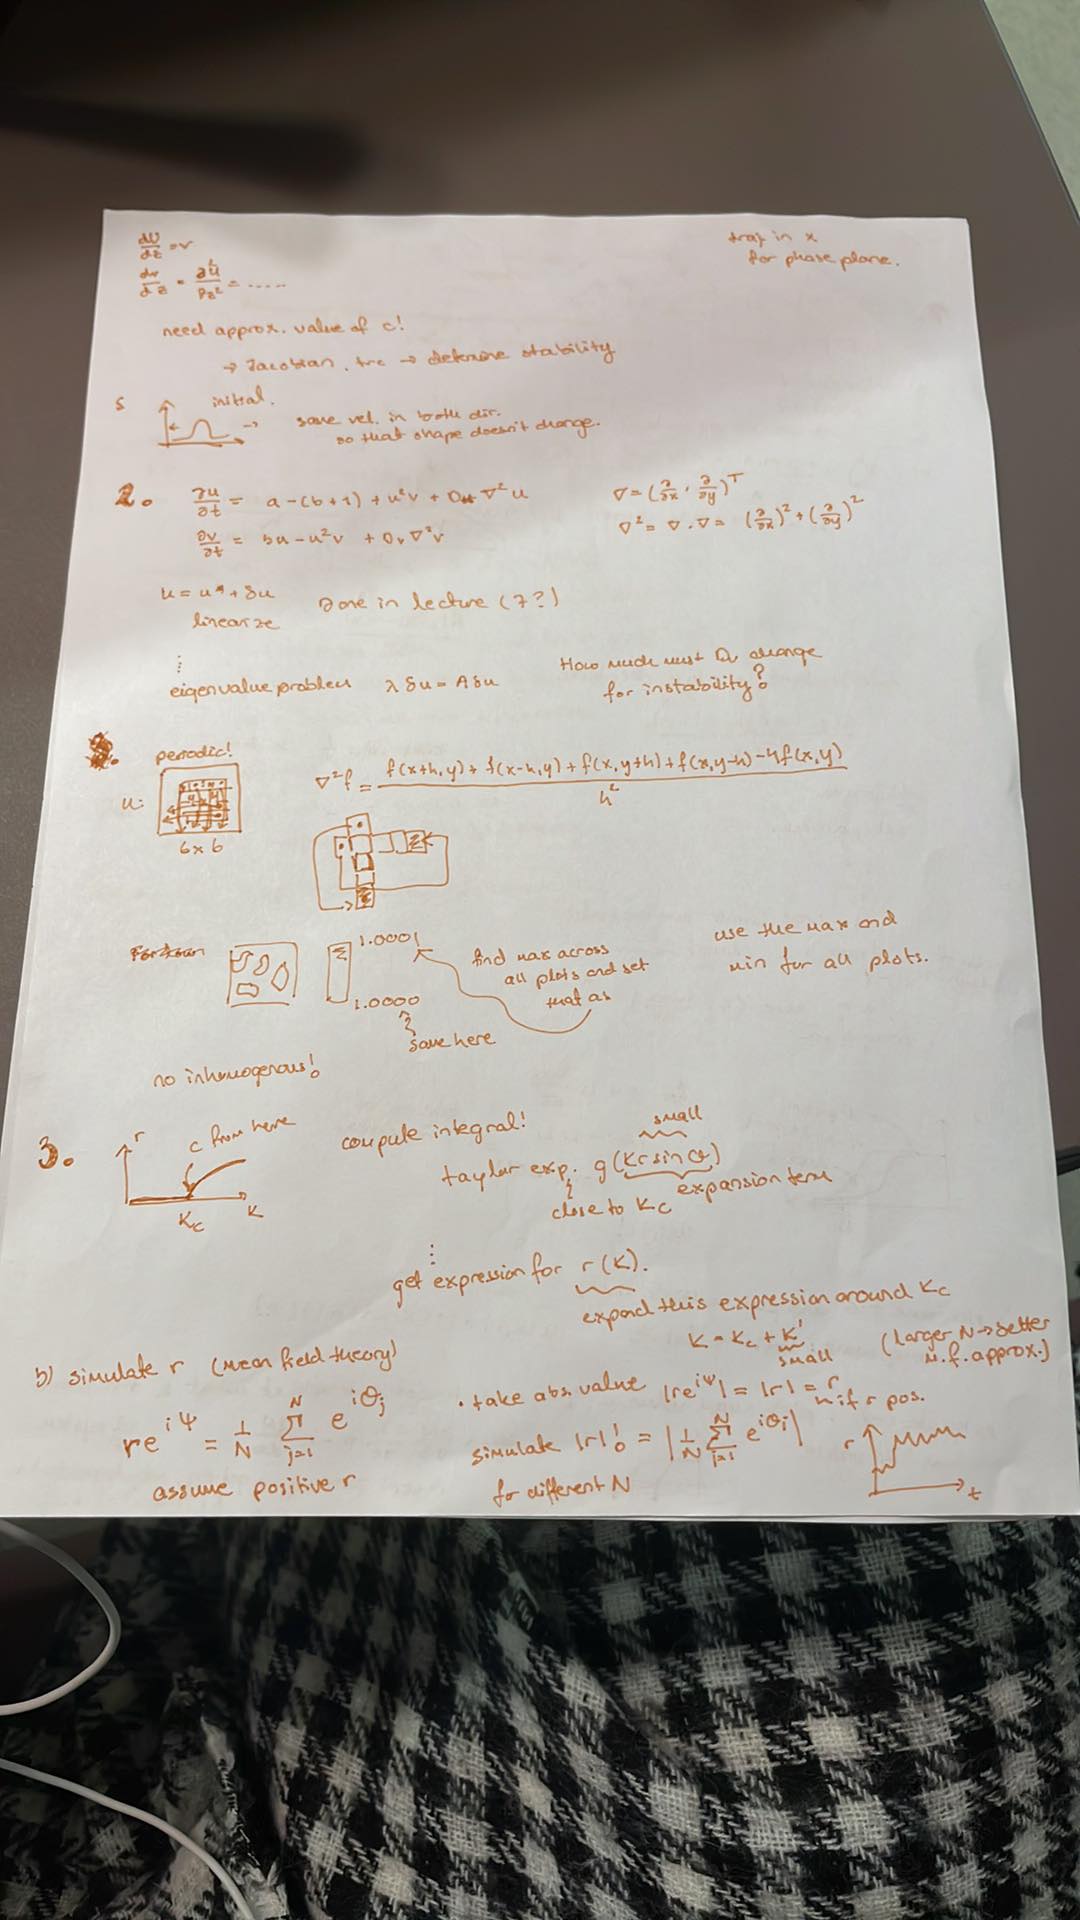 dU/dz = v
dv/dz = ∂²u/∂z² = .....
traj in x
for phase plane.
need approx. value of c!
→ Jacobian, trc → determine stability
5
initial.
same vel. in both dir.
so that shape doesn't change.
2.
∂u/∂t = a-(b+1) + u²v + Du ∇²u
∂v/∂t = bu - u²v + Dv ∇²v
∇ = (∂/∂x, ∂/∂y)^T
∇² = ∇.∇ = (∂/∂x)² + (∂/∂y)²
u = u* + δu
linearize
Done in lecture (7?)
⋮
eigenvalue problem λδu = Aδu
How much must Dv change
for instability?
periodic!
u:
6x6
∇²f = f(x+h,y) + f(x-h,y) + f(x,y+h) + f(x,y-h) - 4f(x,y) / h²
1.0001
1.0000
find max across
all plots and set
that as
same here
use the max and
min for all plots.
no inhomogenous!
3.
r
c from here
Kc
K
compute integral!
small
taylor exp. g(Kr sin θ)
close to Kc
expansion term
⋮
get expression for r(K).
expand this expression around Kc
K = Kc + K'
small
(Larger N → better
m.f. approx.)
b) simulate r (Mean field theory)
re^iψ = 1/N Σ_{j=1}^N e^iθj
assume positive r
· take abs. value |re^iψ| = |r| = r
if r pos.
simulate |r|! = |1/N Σ_{j=1}^N e^iθj|
for different N
r
t